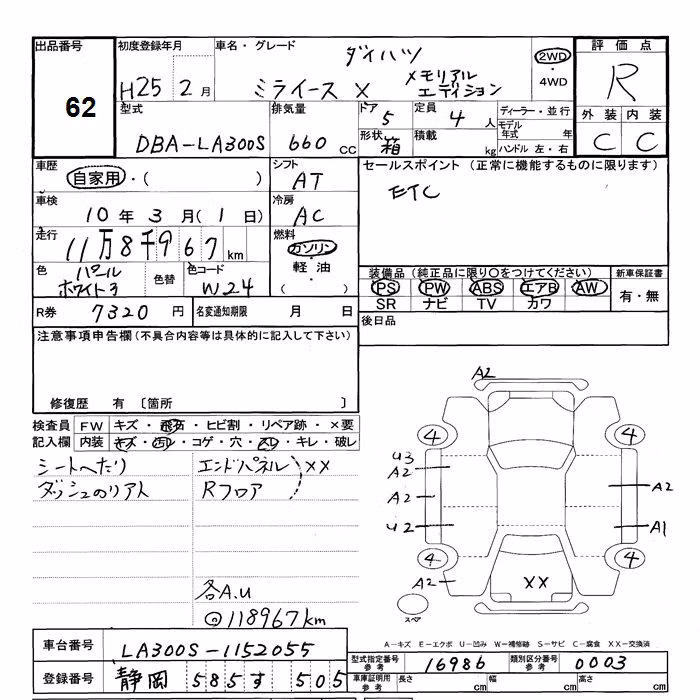 出品番号
62
初度登録年月
H25 2月
車名・グレード
ダイハツ
ミライース X メモリアル
エディション
2WD
・
4WD
評価点
R
外装 内装
C C
型式
DBA-LA300S
排気量
660 CC
ドア
5
定員
4 人
形状
箱
積載
kg
ディーラー・並行
モデル
年式 年
ハンドル 左・右
車歴
自家用・( )
シフト
AT
セールスポイント (正常に機能するものに限ります)
ETC
車検
10年 3月(1日)
冷房
AC
走行
11万8千967km
燃料
ガソリン
・
軽油
( )
色
パール
ホワイト3
色替
色コード
W24
装備品(純正品に限り○をつけてください)
新車保証書
PS PW ABS エアB AW
SR ナビ TV カワ
有・無
R券 7320 円
名変通知期限 月 日
後日品
注意事項申告欄(不具合内容等は具体的に記入して下さい)
修復歴 有 〔箇所 〕
検査員
記入欄
FW キズ・飛石・ヒビ割・リペア跡・×要
内装 キズ・汚レ・コゲ・穴・スレ・キレ・破レ
シートへたり
ダッシュのリアト
エンドパネル
Rフロア
XX
各A.U
◎118967km
A2
4 4
U3
A2
A2
A2
U2
A1
4 4
A2
XX
スペア
A－キズ E－エクボ U－凹み W－補修跡 S－サビ C－腐食 XX－交換済
車台番号 LA300S-1152055
登録番号 静岡 585す 505
型式指定番号
参考
16986
類別区分番号
参考
0003
車庫証明用
参考
長さ cm
幅 cm
高さ cm